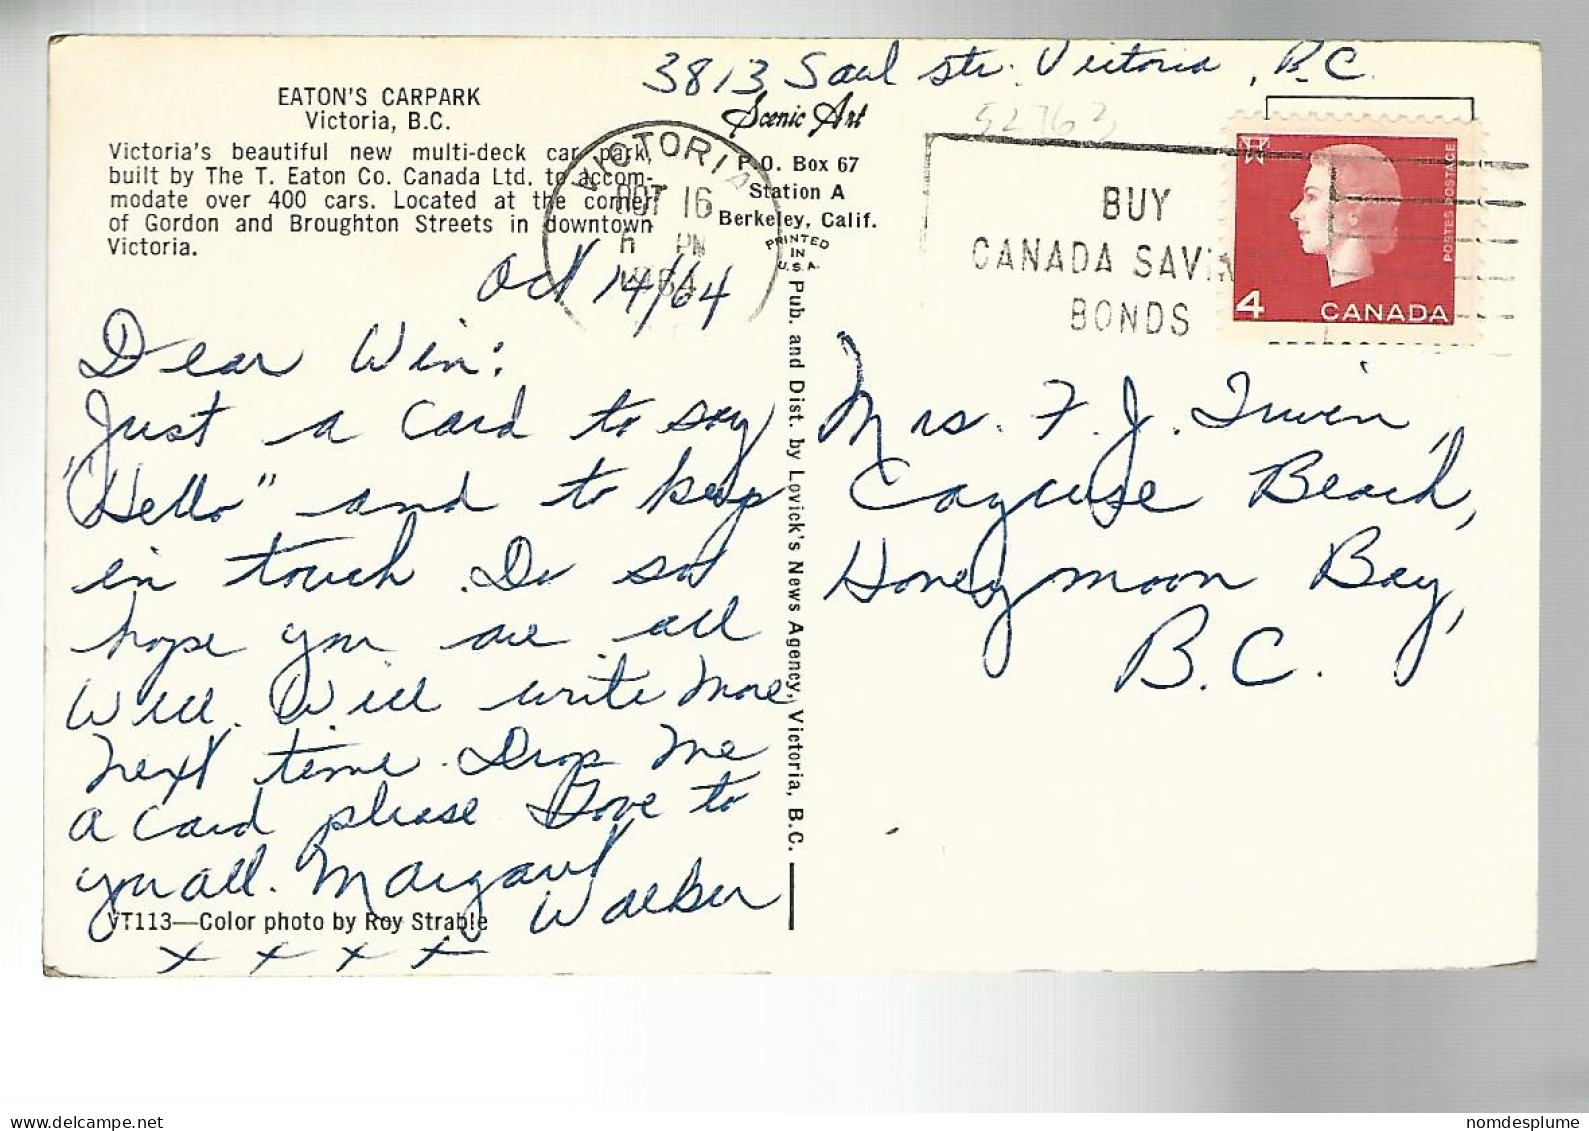 3813 Saul str. Victoria, B.C.
EATON'S CARPARK
Victoria, B.C.
Victoria's beautiful new multi-deck car park,
built by The T. Eaton Co. Canada Ltd. to accom-
modate over 400 cars. Located at the corner
of Gordon and Broughton Streets in downtown
Victoria.
Scenic Art
P.O. Box 67
Station A
Berkeley, Calif.
PRINTED
IN
U.S.A.
VICTORIA
OCT 16
PM
1964
52763
BUY
CANADA SAVIN
BONDS
POSTES POSTAGE
4 CANADA
Oct 14/64
Dear Win:
Just a card to say
"Hello" and to keep
in touch. Do so
hope you are all
well. Will write more
next time. Drop me
a card please Love to
you all. Margaret
Walker
x x x x
VT113—Color photo by Roy Strable
Pub. and Dist. by Lovick's News Agency, Victoria, B.C.
Mrs. F. J. Irwin,
Cayuse Beach,
Honeymoon Bay,
B.C.
nomdesplume